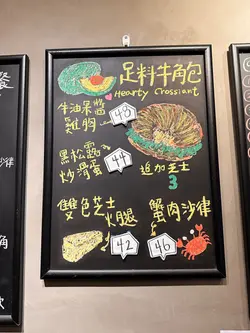 足料牛角包
Hearty Crossiant
牛油果醬
雞胸
48
黑松露
炒滑蛋
44
追加芝士
3
雙色芝士
火腿
42
蟹肉沙律
46
餐
角